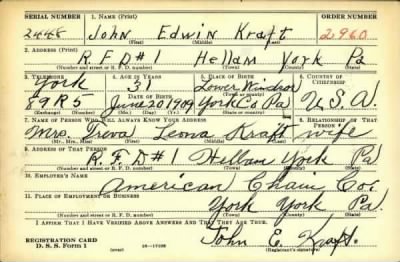 SERIAL NUMBER 1. NAME (Print) ORDER NUMBER
2448 John Edwin Kraft 2960
(First) (Middle) (Last)
2. ADDRESS (Print)
R.F.D#1 Hellam York Pa
(Number and street or R. F. D. number) (Town) (County) (State)
3. TELEPHONE 4. AGE IN YEARS 5. PLACE OF BIRTH 6. COUNTRY OF CITIZENSHIP
York 31 Lower Windsor
DATE OF BIRTH (Town or county)
89R5 June 20 1909 York Co Pa U.S.A.
(Exchange) (Number) (Mo.) (Day) (Yr.) (State or country)
7. NAME OF PERSON WHO WILL ALWAYS KNOW YOUR ADDRESS 8. RELATIONSHIP OF THAT PERSON
Mrs. Treva Leona Kraft wife
(Mr., Mrs., Miss) (First) (Middle) (Last)
9. ADDRESS OF THAT PERSON
R.F.D#1 Hellam York Pa
(Number and street or R. F. D. number) (Town) (County) (State)
10. EMPLOYER'S NAME
American Chain Co.
11. PLACE OF EMPLOYMENT OR BUSINESS
York York Pa.
(Number and street or R. F. D. number) (Town) (County) (State)
I AFFIRM THAT I HAVE VERIFIED ABOVE ANSWERS AND THAT THEY ARE TRUE.
REGISTRATION CARD
D. S. S. Form 1 (over) John E. Kraft.
(Registrant's signature)